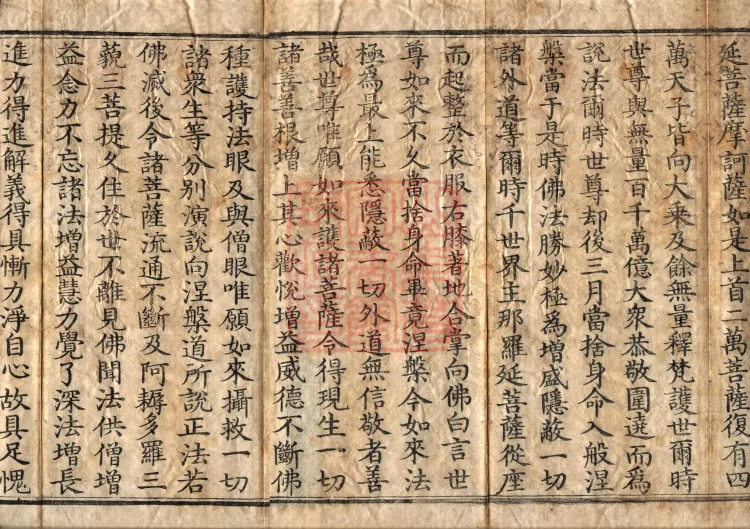 延菩薩摩訶薩如是上首二萬菩薩復有四
萬天子皆向大乘及餘無量釋梵護世爾時
世尊與無量百千萬億大衆恭敬圍遶而爲
說法爾時世尊却後三月當捨身命入般涅
槃當于是時佛法勝妙極爲增盛隱蔽一切
諸外道等爾時十世界主那羅延菩薩從座
而起整於衣服右膝著地合掌向佛白言世
尊如來不久當捨身命畢竟涅槃今如來法
極為最上能悉隱蔽一切外道無信敬者善
哉世尊唯願如來護諸菩薩令得現生一切
諸善善根增上其心歡悅增益威德不斷佛
種護持法眼及與僧眼唯願如來攝救一切
諸衆生等分別演說向涅槃道所說正法若
佛滅後令諸菩薩流通不斷及阿耨多羅三
藐三菩提久住於世不離見佛聞法供僧增
益念力不忘諸法增益慧力覺了深法增長
進力得進解義得具慚力淨自心故具足愧